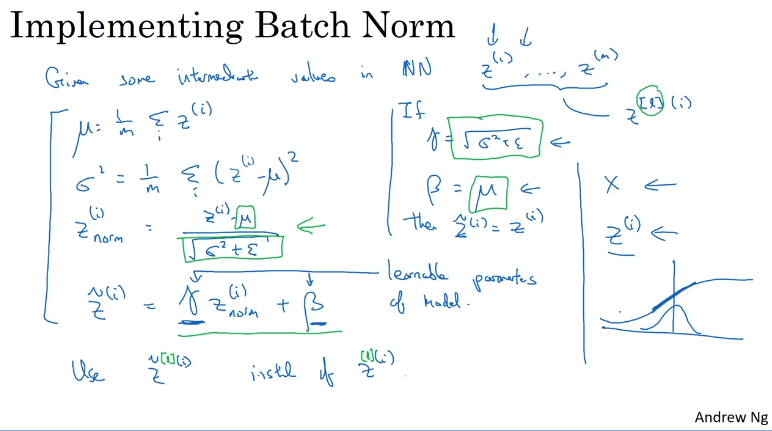 Implementing Batch Norm
Given some intermediate values in NN z^(i), ..., z^(m)
z^[l](i)
μ = 1/m Σ_i z^(i)
σ² = 1/m Σ_i (z^(i) - μ)²
z^(i)_norm = (z^(i) - μ) / √(σ² + ε)
z̃^(i) = γ z^(i)_norm + β
learnable parameters
of model.
If
γ = √(σ² + ε)
β = μ
then z̃^(i) = z^(i)
X
z^(i)
Use z̃^[l](i) instead of z^[l](i).
Andrew Ng